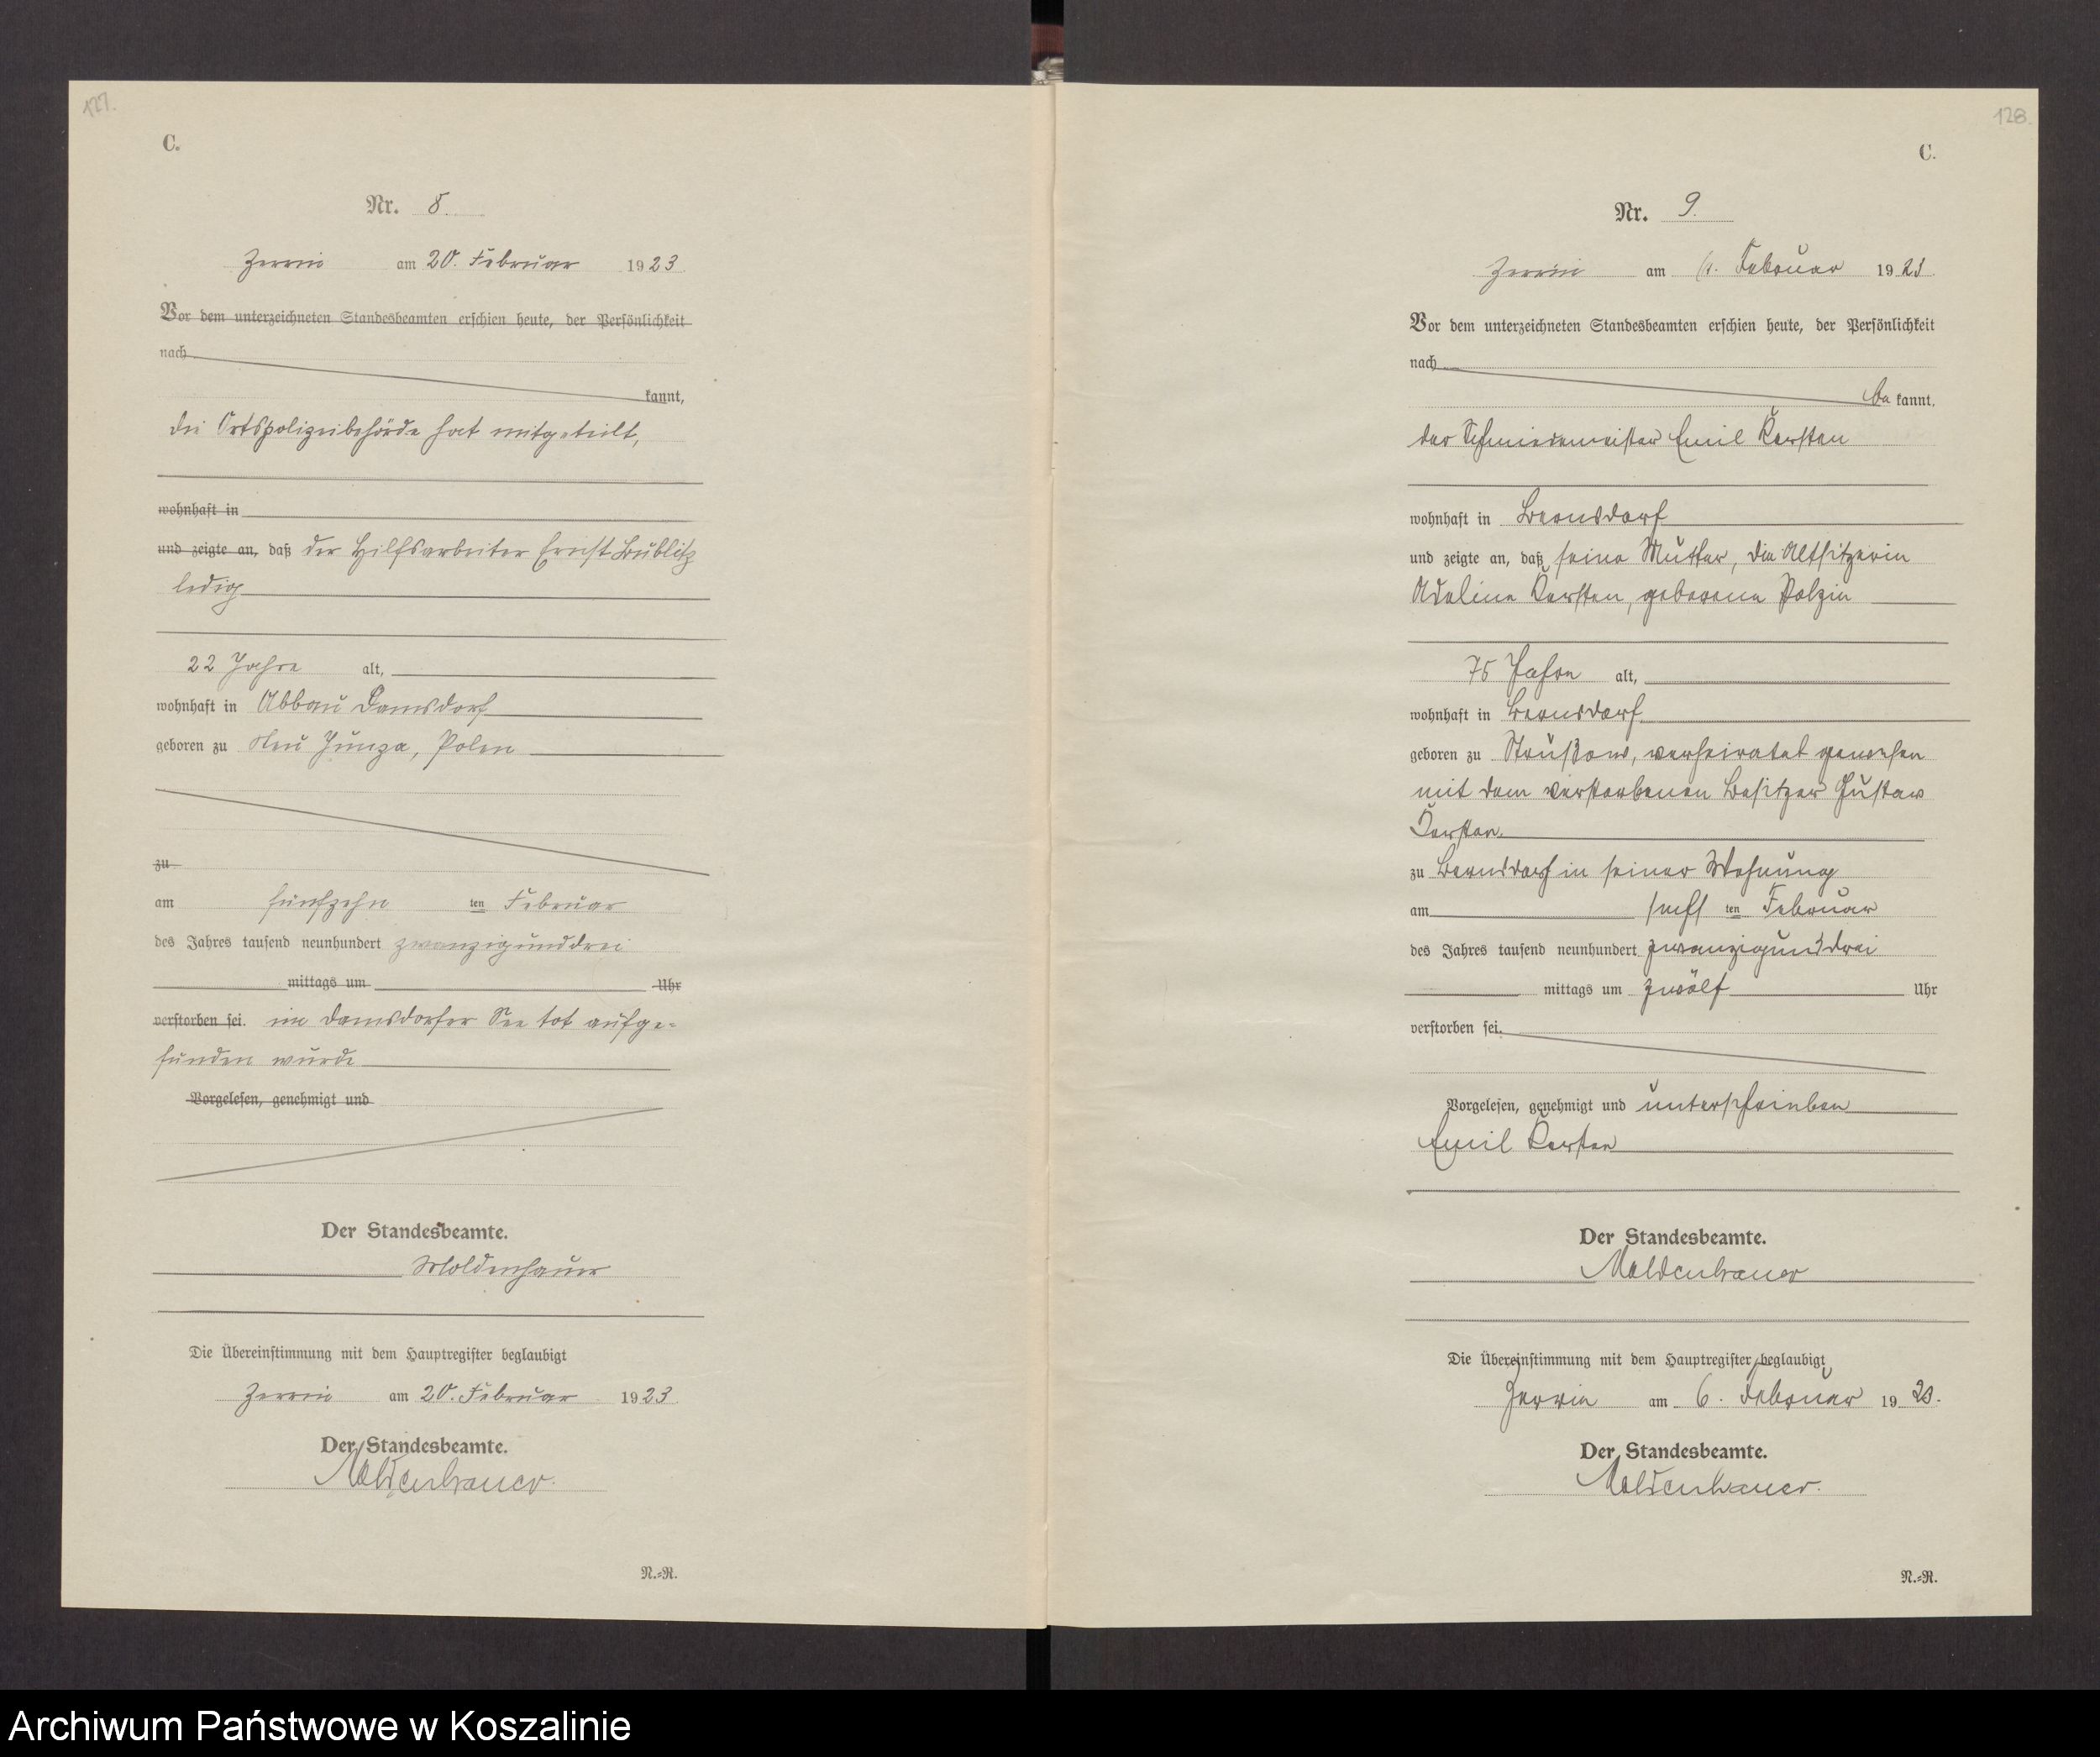 127.
C.
Nr. 8.
Zerrin am 20. Februar 1923
Vor dem unterzeichneten Standesbeamten erschien heute, der Persönlichkeit
nach
kannt,
die Ortspolizeibehörde hat mitgeteilt,
wohnhaft in
und zeigte an, daß der Hilfsarbeiter Ernst Bublitz
ledig
22 Jahre alt,
wohnhaft in Abbau Damsdorf
geboren zu Neu Polen
zu
am fünfzehn ten Februar
des Jahres tausend neunhundert zwanzigunddrei
mittags um Uhr
verstorben sei. im Damsdorfer See tot aufge-
funden wurde
Vorgelesen, genehmigt und
Der Standesbeamte.
Moldenhauer
Die Übereinstimmung mit dem Hauptregister beglaubigt
Zerrin am 20. Februar 1923
Der Standesbeamte.
Moldenhauer.
N.=R.
128.
C.
Nr. 9.
Zerrin am 6. Februar 1923
Vor dem unterzeichneten Standesbeamten erschien heute, der Persönlichkeit
nach
be kannt,
der Schmiedemeister Emil Kersten
wohnhaft in Bernsdorf
und zeigte an, daß seine Mutter, die Altsitzerin
Adeline Kersten, geborene Polzin
75 Jahre alt,
wohnhaft in Bernsdorf
geboren zu Strussow, verheiratet gewesen
mit dem verstorbenen Besitzer Gustav
Kersten.
zu Bernsdorf in seiner Wohnung
am sechs ten Februar
des Jahres tausend neunhundert zwanzigunddrei
mittags um zwölf Uhr
verstorben sei.
Vorgelesen, genehmigt und unterschrieben
Emil Kersten
Der Standesbeamte.
Moldenhauer
Die Übereinstimmung mit dem Hauptregister beglaubigt
Zerrin am 6. Februar 1923.
Der Standesbeamte.
Moldenhauer.
N.=R.
Archiwum Państwowe w Koszalinie